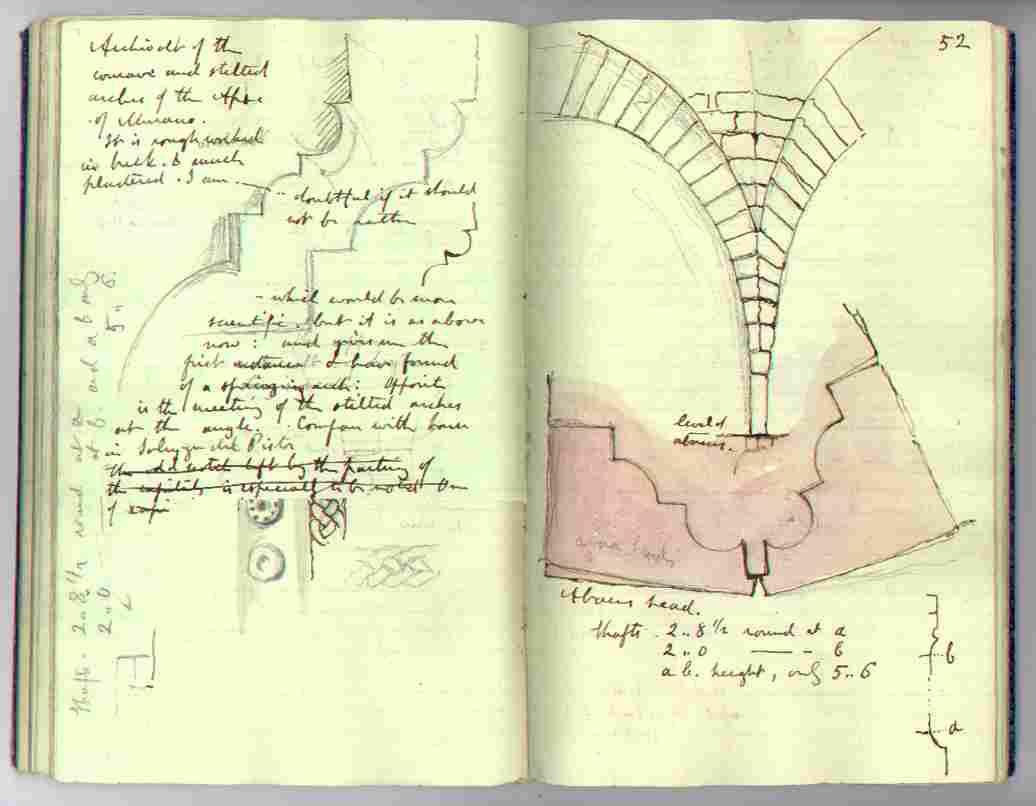 Archivolt of the
concave and stilted
arches of the Apse
of Murano.
It is rough worked
in brick. & much
plastered. I am
doubtful if it should
not be rather
- which would be more
scientific. but it is as above
now: and gives me the
first instance I have found
of a springing arch: Opposite
is the meeting of the stilted arches
at the angle. Compare with
in del
the old notch left by the parting of
the capitals is especially to be noted
of
Shafts - 2..8 1/2 round at a
2..0 at b. and a b only
5..6.
52
level of
abacus.
Abacus head.
Shafts. 2..8 1/2 round at a
2..0 —— - b
a b. height, only 5..6
b
a